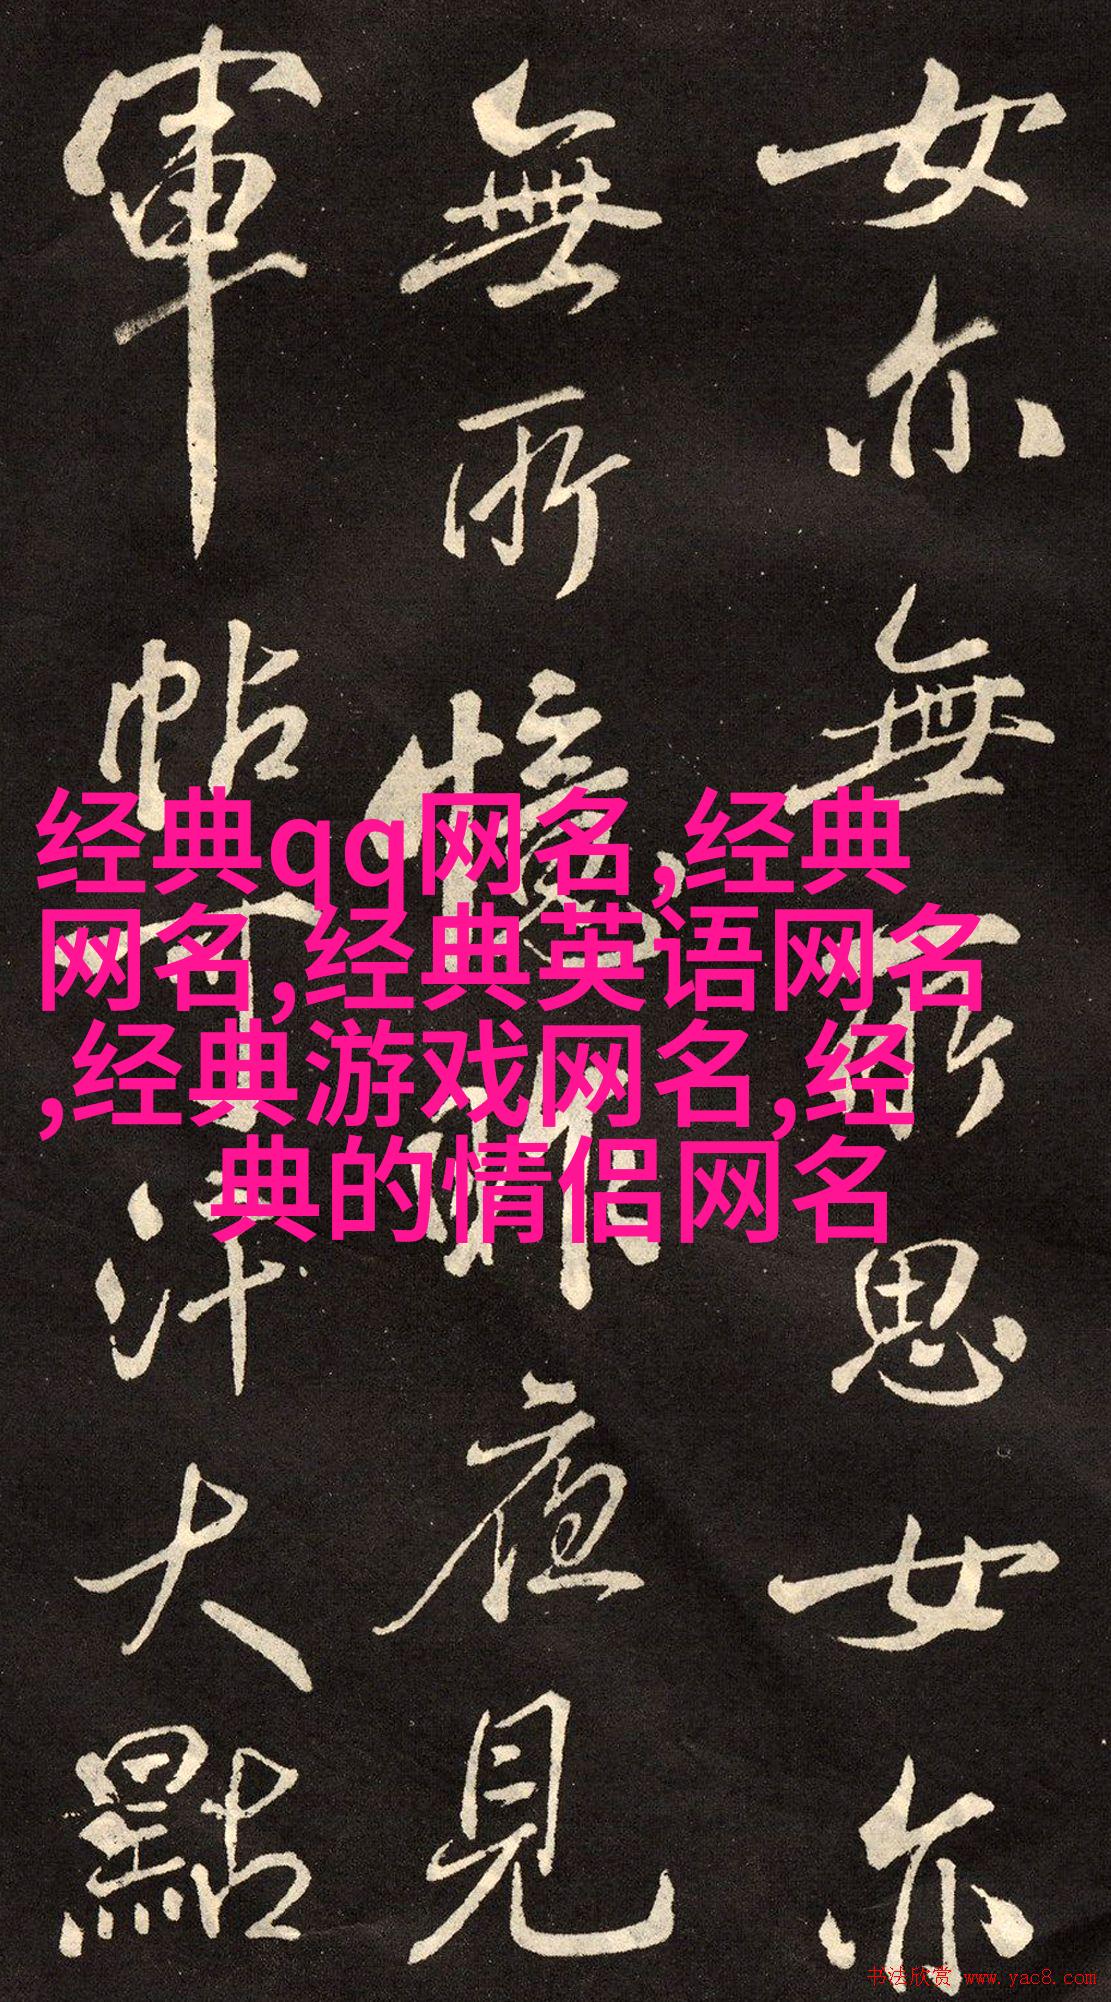 女亦無所思女亦
無所憶昨夜見
軍帖可汗大點
经典qq网名,经典
网名,经典英语网名
,经典游戏网名,经
典的情侣网名
书法欣赏 www.yac8.com